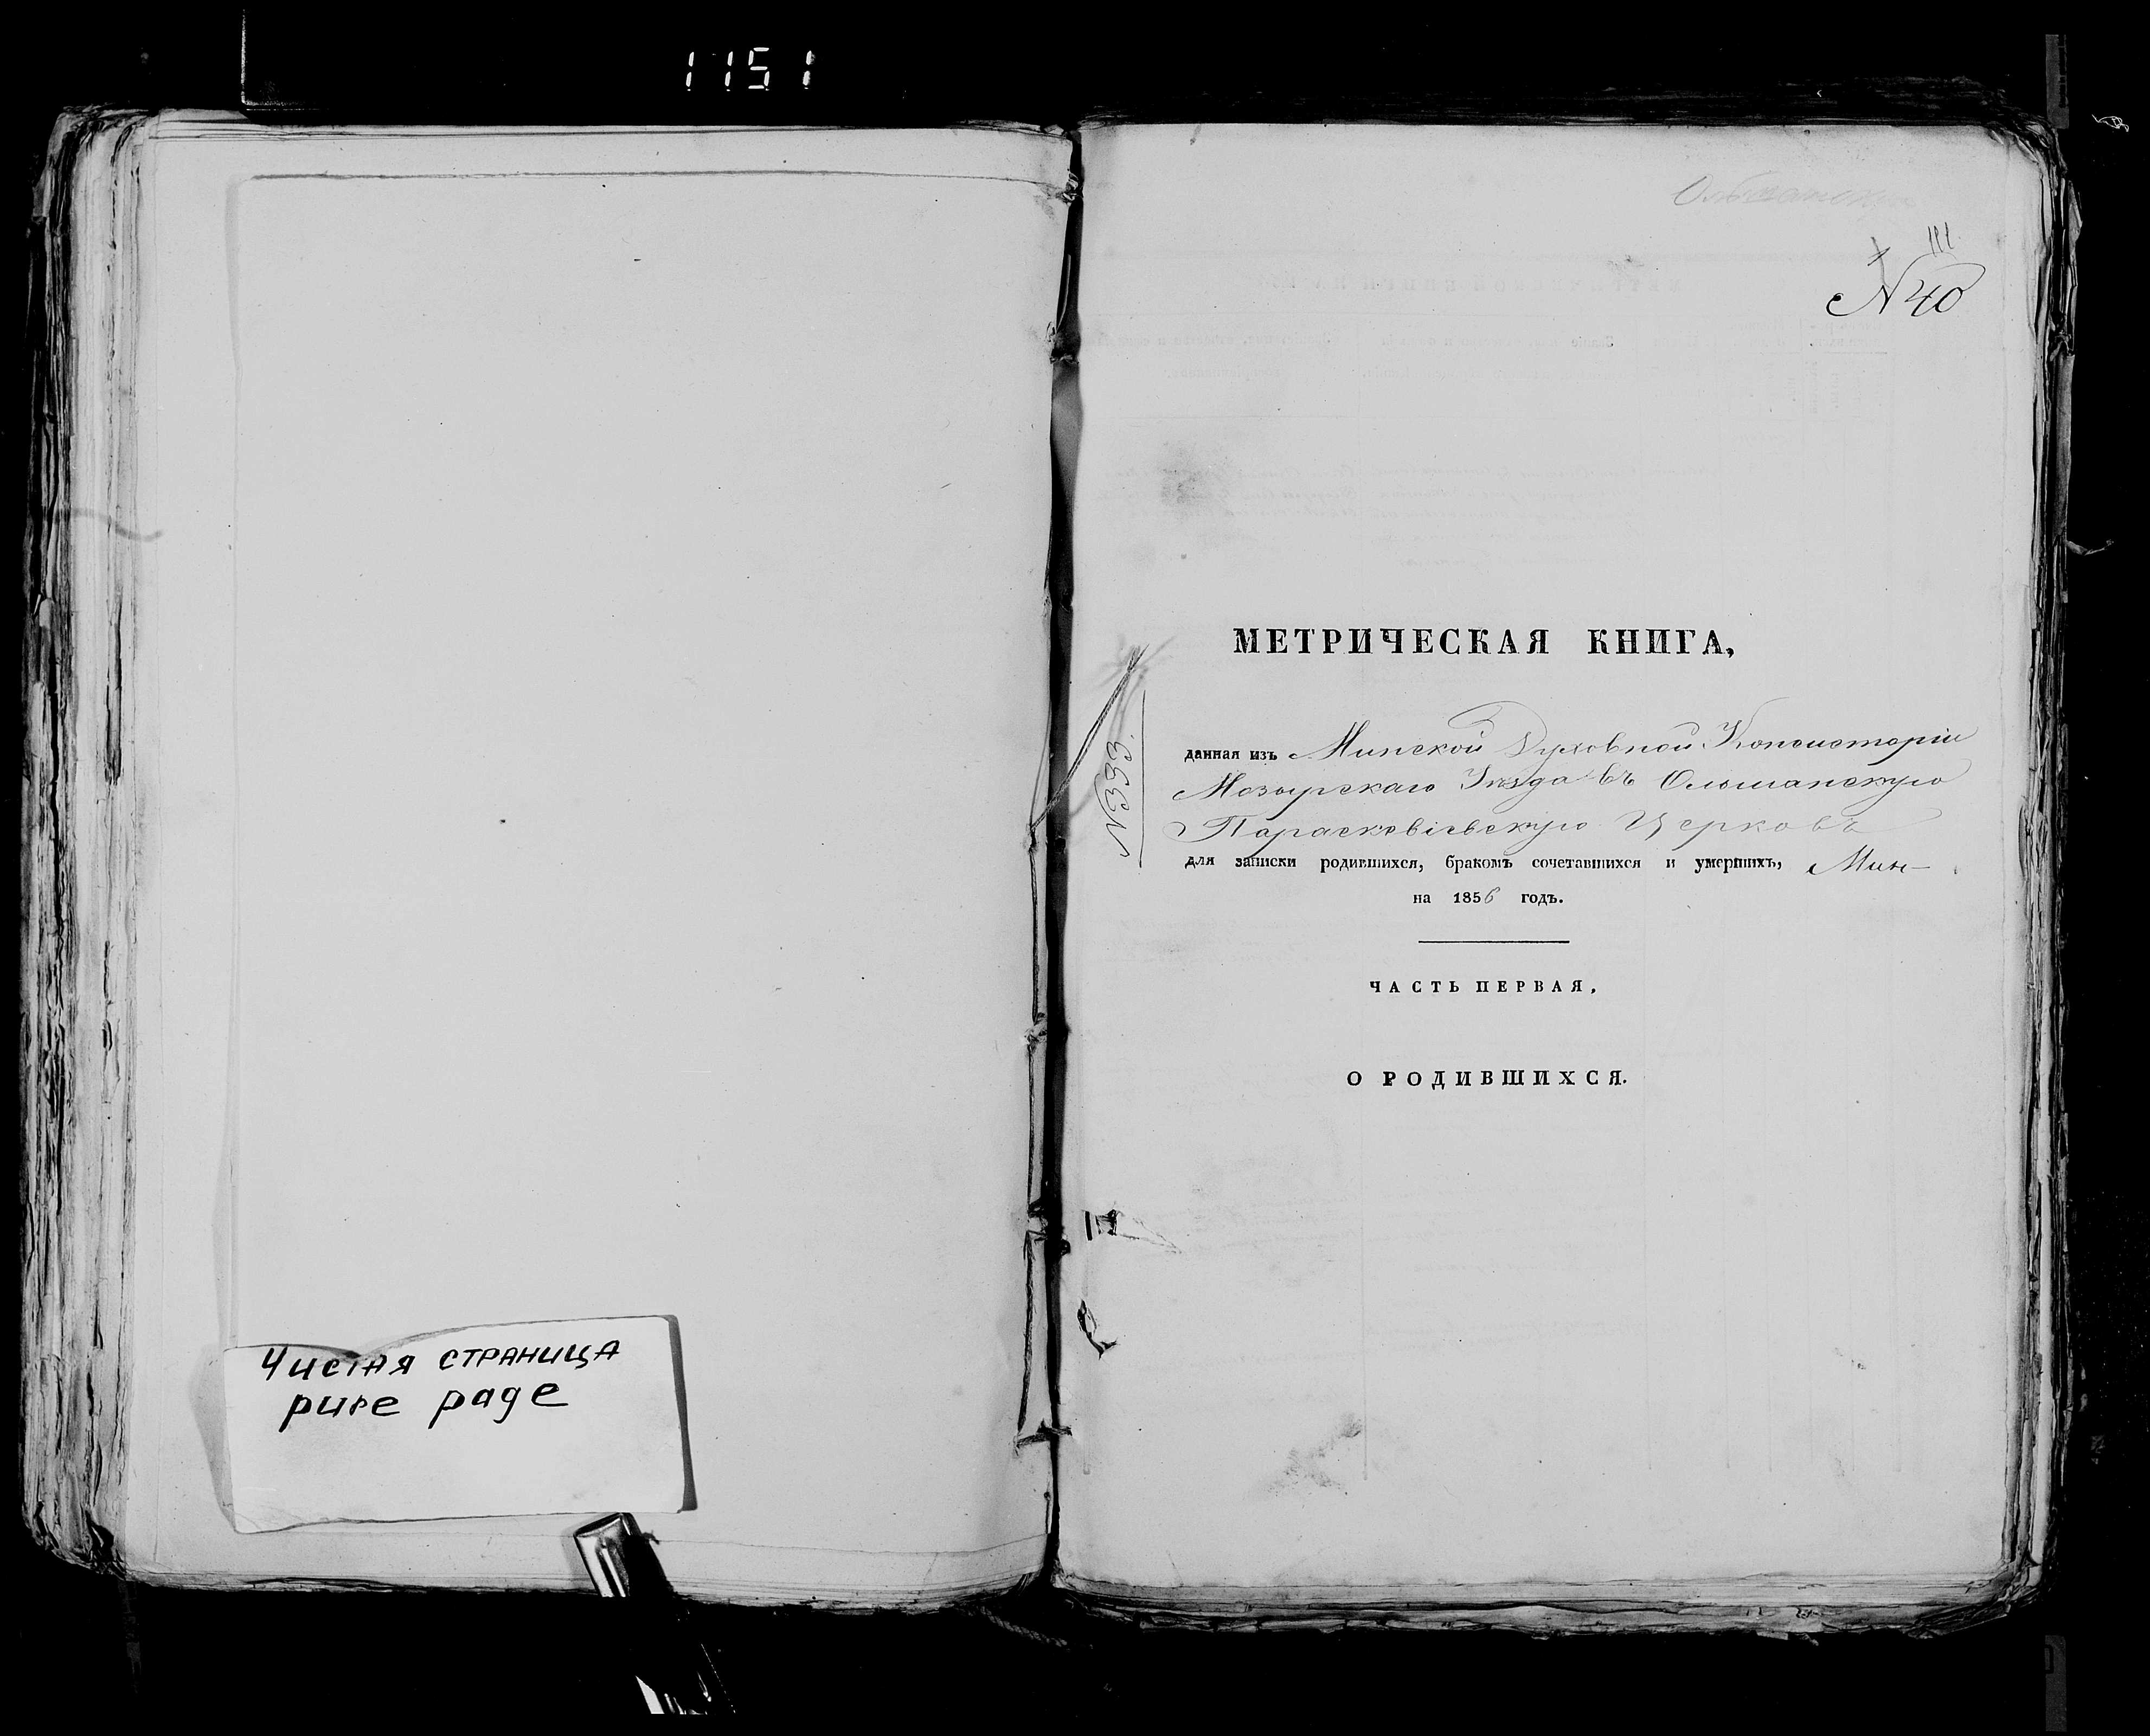 1151
Чистая страница
pure page
N40
МЕТРИЧЕСКАЯ КНИГА,
данная изъ Минской Духовной Консисторіи
Мозырскаго Уѣзда въ Ольшанскую
Параскевіевскую Церковь
для записки родившихся, бракомъ сочетавшихся и умершихъ, Мин-
на 1856 годъ.
N333.
ЧАСТЬ ПЕРВАЯ,
О РОДИВШИХСЯ.